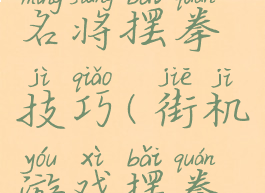 míng jiàng bǎi quán
名将摆拳
jì qiǎo jiē jī
技巧(街机
yóu xì bǎi quán
游戏摆拳